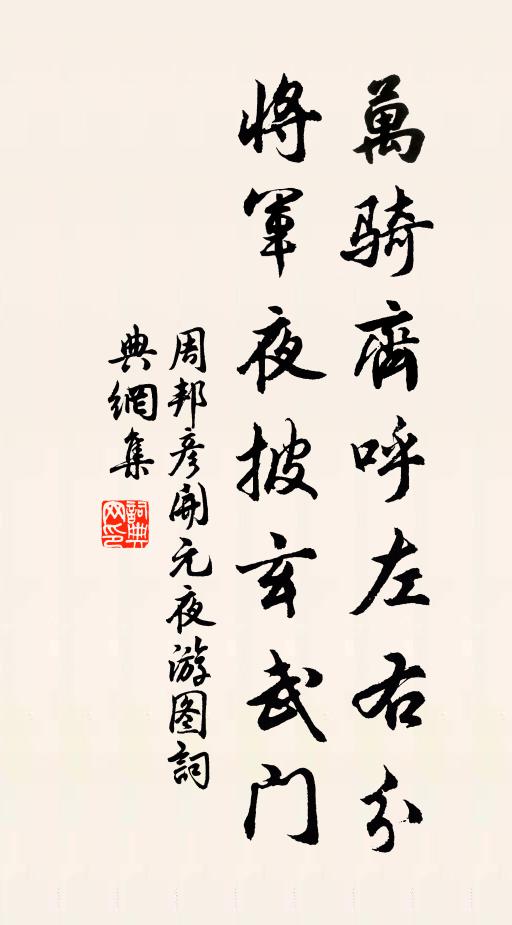 萬騎齊呼左右分
將軍夜披玄武門
周邦彦開元夜游图詞
典網集
詞典网印